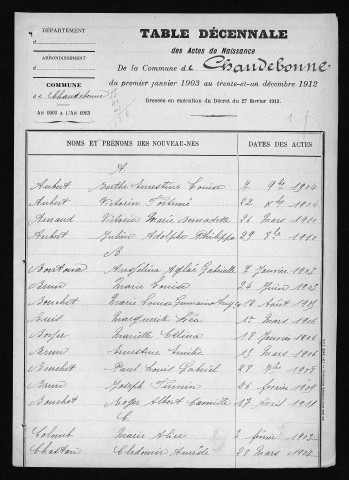 DÉPARTEMENT
ARRONDISSEMENT
COMMUNE
de Chaudebonne
AN 1903 A L'AN 1913
TABLE DÉCENNALE
des Actes de Naissance
De la Commune de Chaudebonne
du premier janvier 1903 au trente-et-un décembre 1912
Dressée en exécution du Décret du 27 février 1913.
NOMS ET PRÉNOMS DES NOUVEAU-NÉS DATES DES ACTES
A
Aubert Berthe Ernestine Louise 7 9bre 1904
Aubert Victorin Fortuné 22 1906
Victoria Marie Bernadette 26 Mars 1910
Aubert Julien Adolphe Philippe 29 8bre 1910
B
Angélina Aglaé Gabrielle 7 Janvier 1903
Brun Marie Louise 24 Juin 1903
Bouchet Marie Louise 18 Août 1905
Marguerite Léa Mars 1906
Mariette Célina 18 Janvier 1906
Brun Ernestine 15 Mars 1906
Bouchet Paul Louis Gabriel 28 1908
Brun Joseph Firmin 26 février 1909
Bouchet Roger Albert Camille 17 avril 1911
C
Colomb Marie Alice 3 février 1903
Chastan Clodomir Amédé 29 Mars 1904